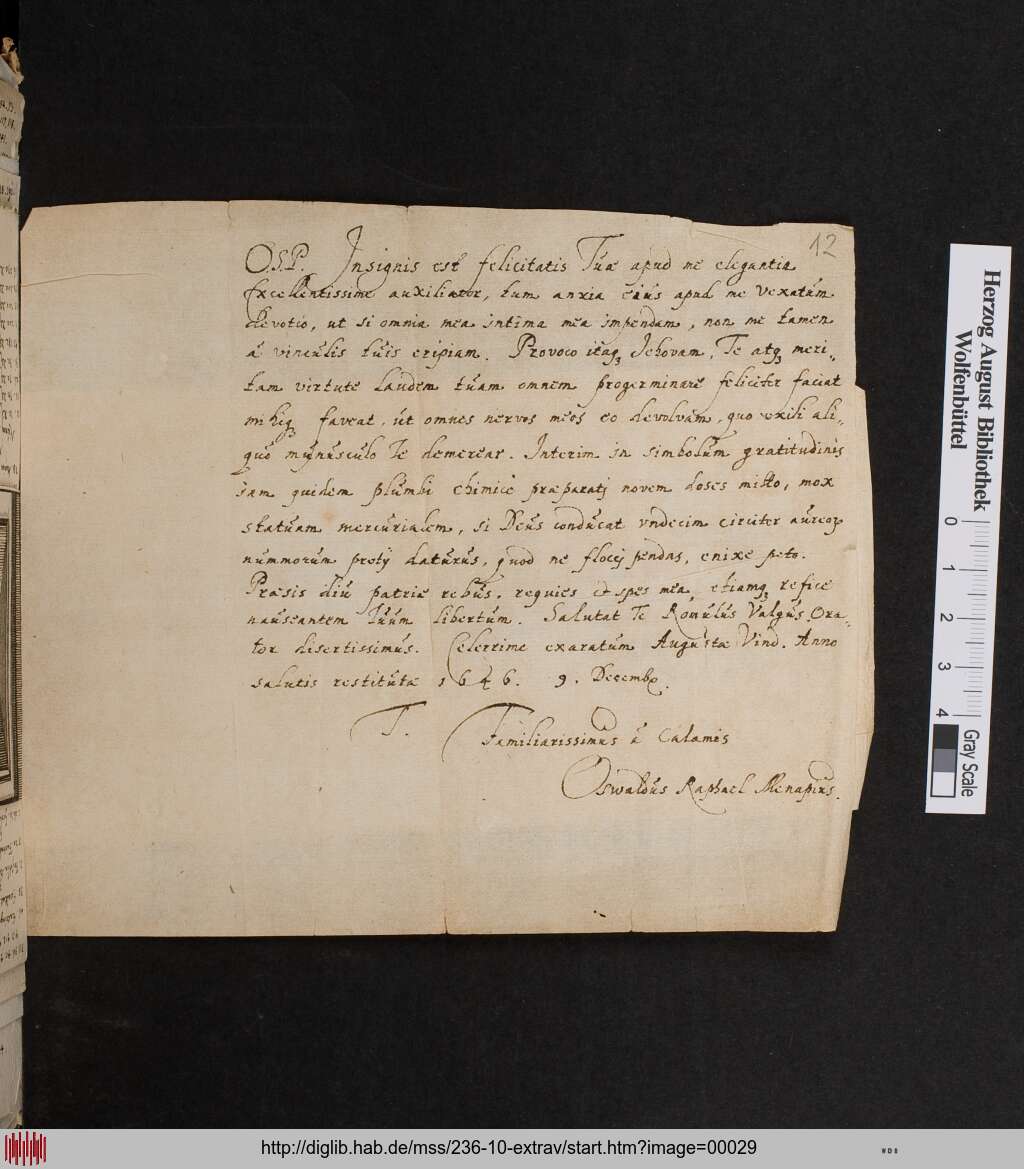 12
O.S.P. Insignis est felicitatis Tuæ apud me elegantia
Excellentissime auxiliator, tum anxia eius apud me vexatum
devotio, ut si omnia mea intima mea impendam, non me tamen
à vinculis tuis eripiam. Provoco itaqꝫ Jehovam, Te atqꝫ meri-
tam virtute laudem tuam omnem progerminare feliciter faciat
mihiqꝫ faveat, ut omnes nervos meos eo devolvam, quo exili ali-
quo mynusculo Te demerear. Interim in simbolum gratitudinis
iam quidem plumbi chimicè præparatj novem doses mitto, mox
statuam mercurialem, si Deus conducat vndecim circiter aureoꝝ
nummorum pretij daturus, quod ne floccj pendas, enixe peto.
Præsis diu patriæ rebus, requies et spes mea, etiamqꝫ refice
nauseantem tuum libertum. Salutat Te Romulus Valgus Ora-
tor disertissimus. Celerrime exaratum Augustæ Vind. Anno
salutis restitutæ 1646. 9. Decemb.
T.
Familiarissimus à Calamis
Oswaldus Raphael Menapius.
Herzog August Bibliothek
Wolfenbüttel
0 1 2 3 4
Gray Scale
http://diglib.hab.de/mss/236-10-extrav/start.htm?image=00029